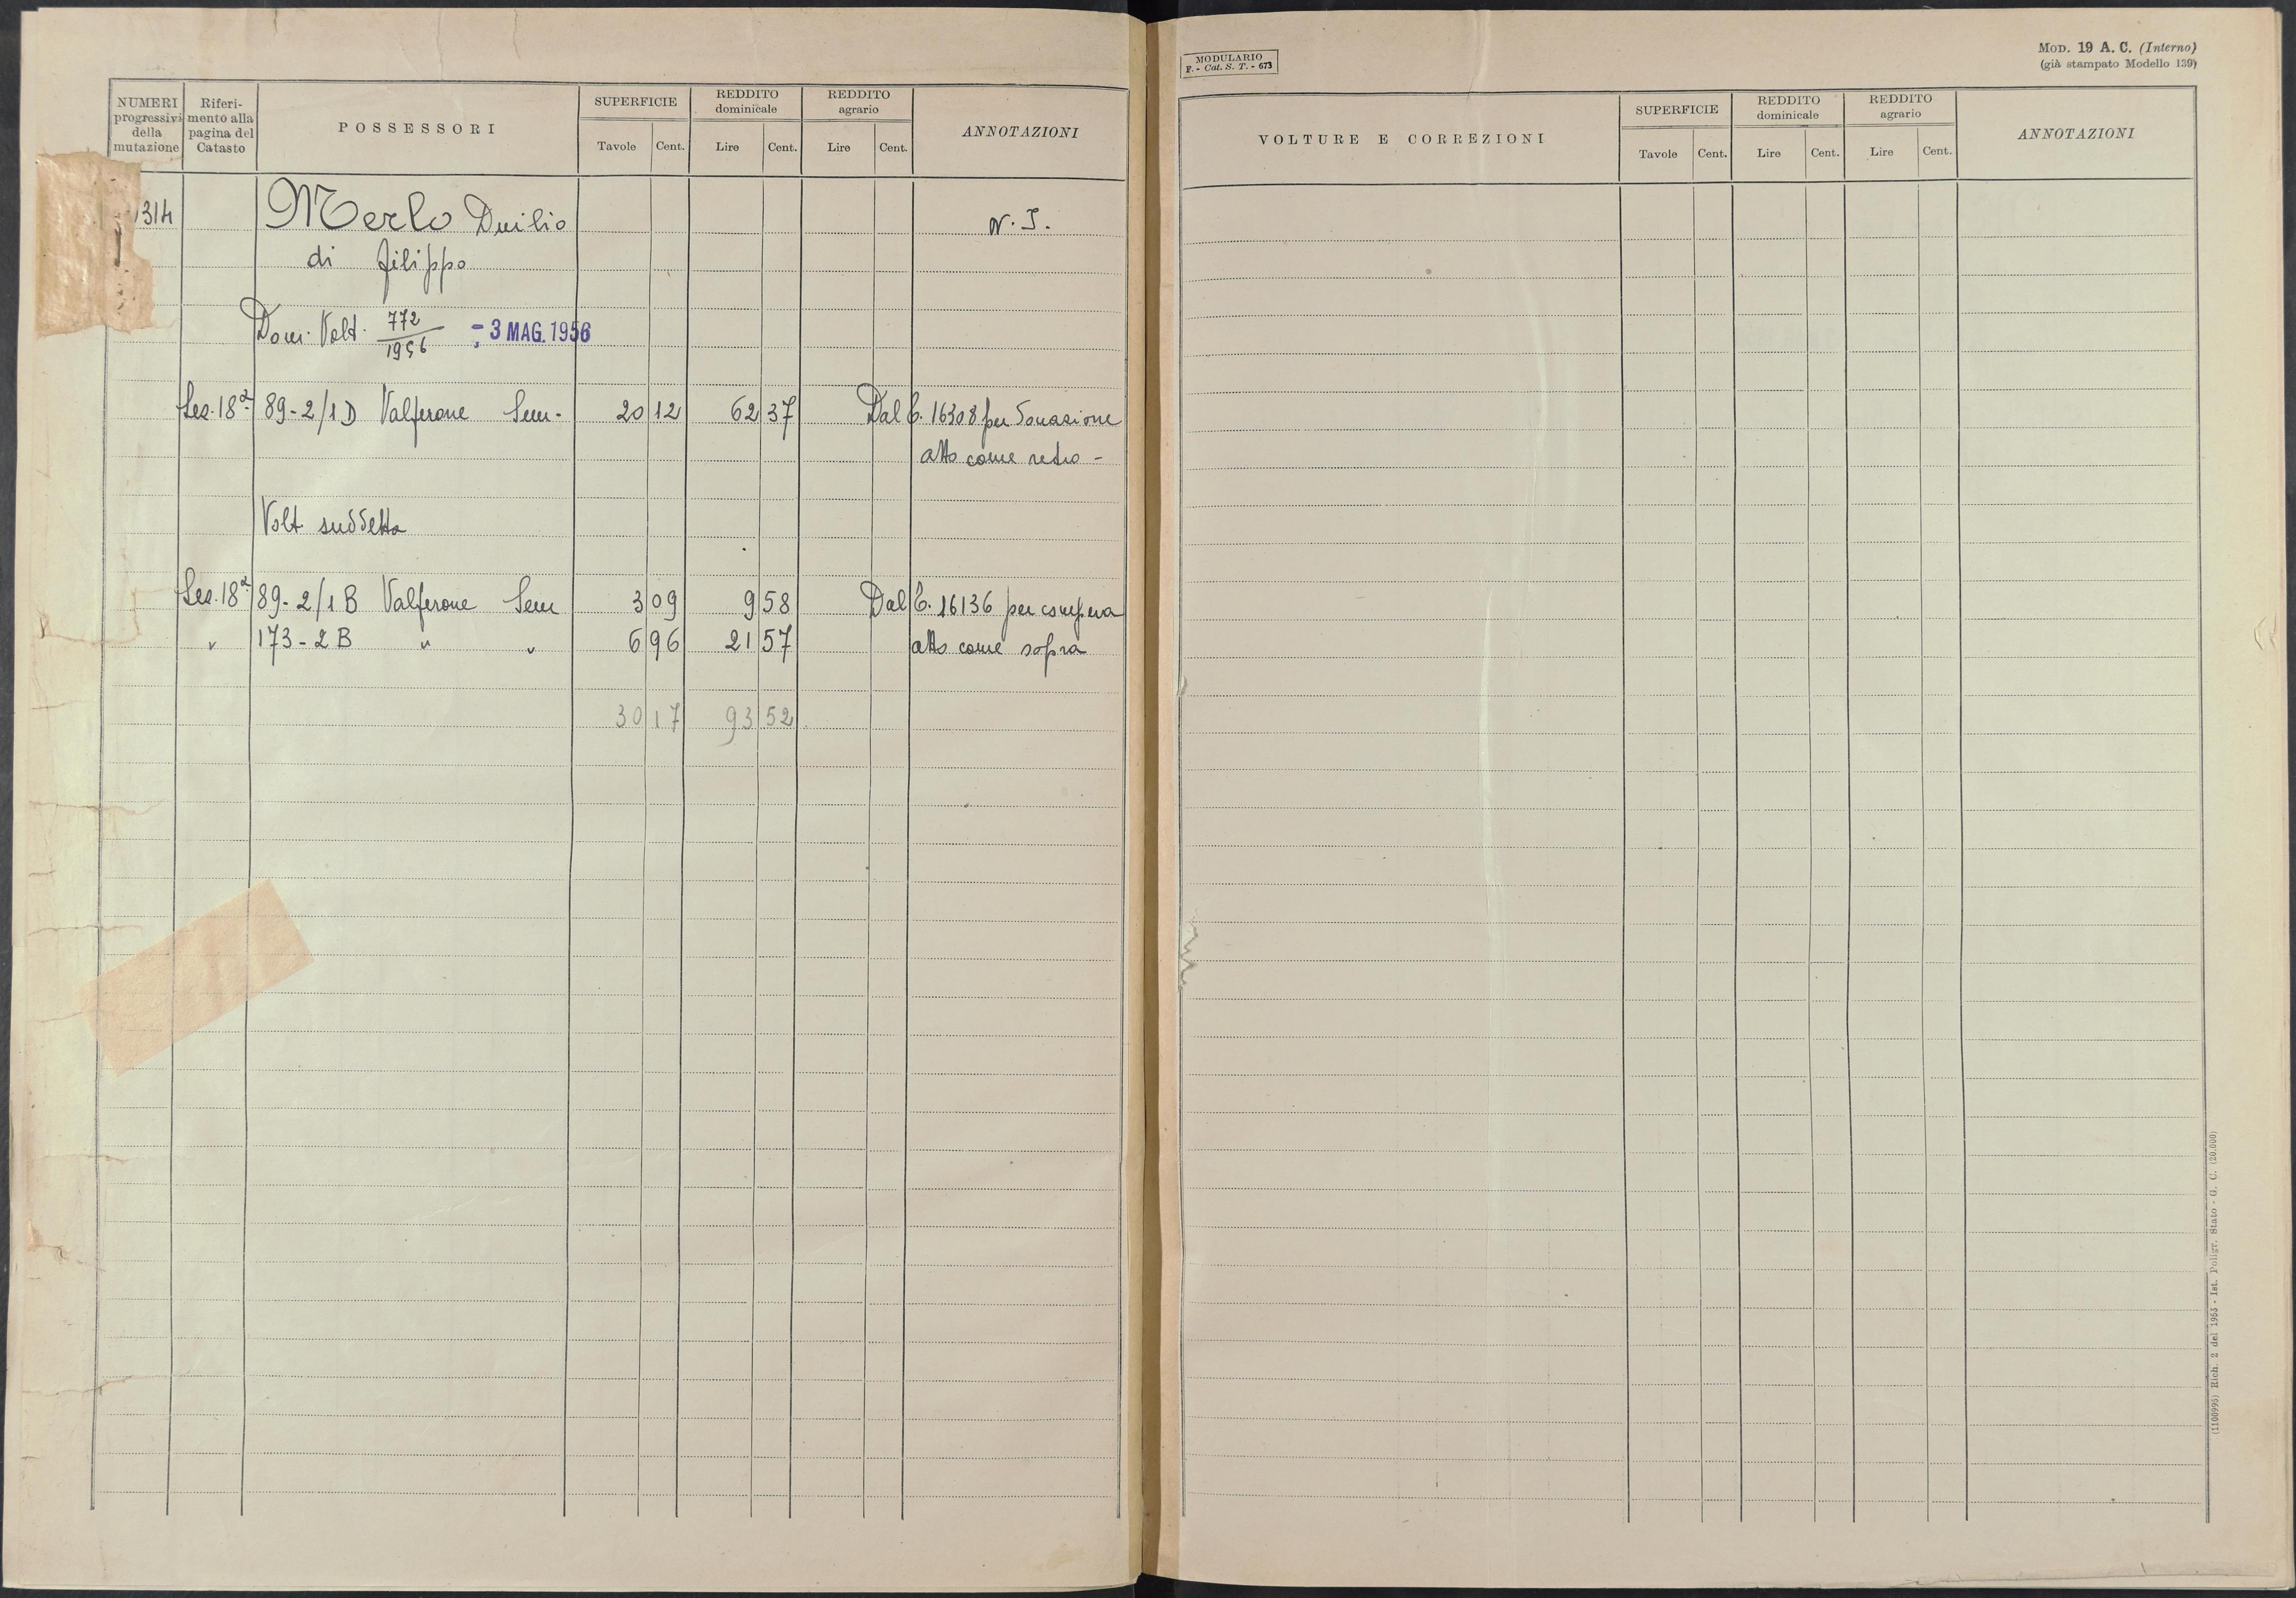 NUMERI progressivi della mutazione
Riferi-mento alla pagina del Catasto
POSSESSORI
SUPERFICIE
Tavole Cent.
REDDITO dominicale
Lire Cent.
REDDITO agrario
Lire Cent.
ANNOTAZIONI
314 Merlo Duilio N. I.
di Filippo
Dom. Volt. 772/1956 - 3 MAG. 1956
Sez. 18ª 89-2/1 D Valferone Sem. 20 12 62 37 Dal C. 16308 per donazione
atto come retro -
Volt. suddetta
Sez. 18ª 89-2/1 B Valferone Sem 3 09 9 58 Dal C. 16136 per compera
" 173-2 B " " 6 96 21 57 atto come sopra
30 17 93 52
MODULARIO
F. - Cat. S. T. - 673
MOD. 19 A. C. (Interno)
(già stampato Modello 139)
VOLTURE E CORREZIONI
SUPERFICIE
Tavole Cent.
REDDITO dominicale
Lire Cent.
REDDITO agrario
Lire Cent.
ANNOTAZIONI
(1100995) Rich. 2 del 1953 - Ist. Poligr. Stato - G. C. (20.000)